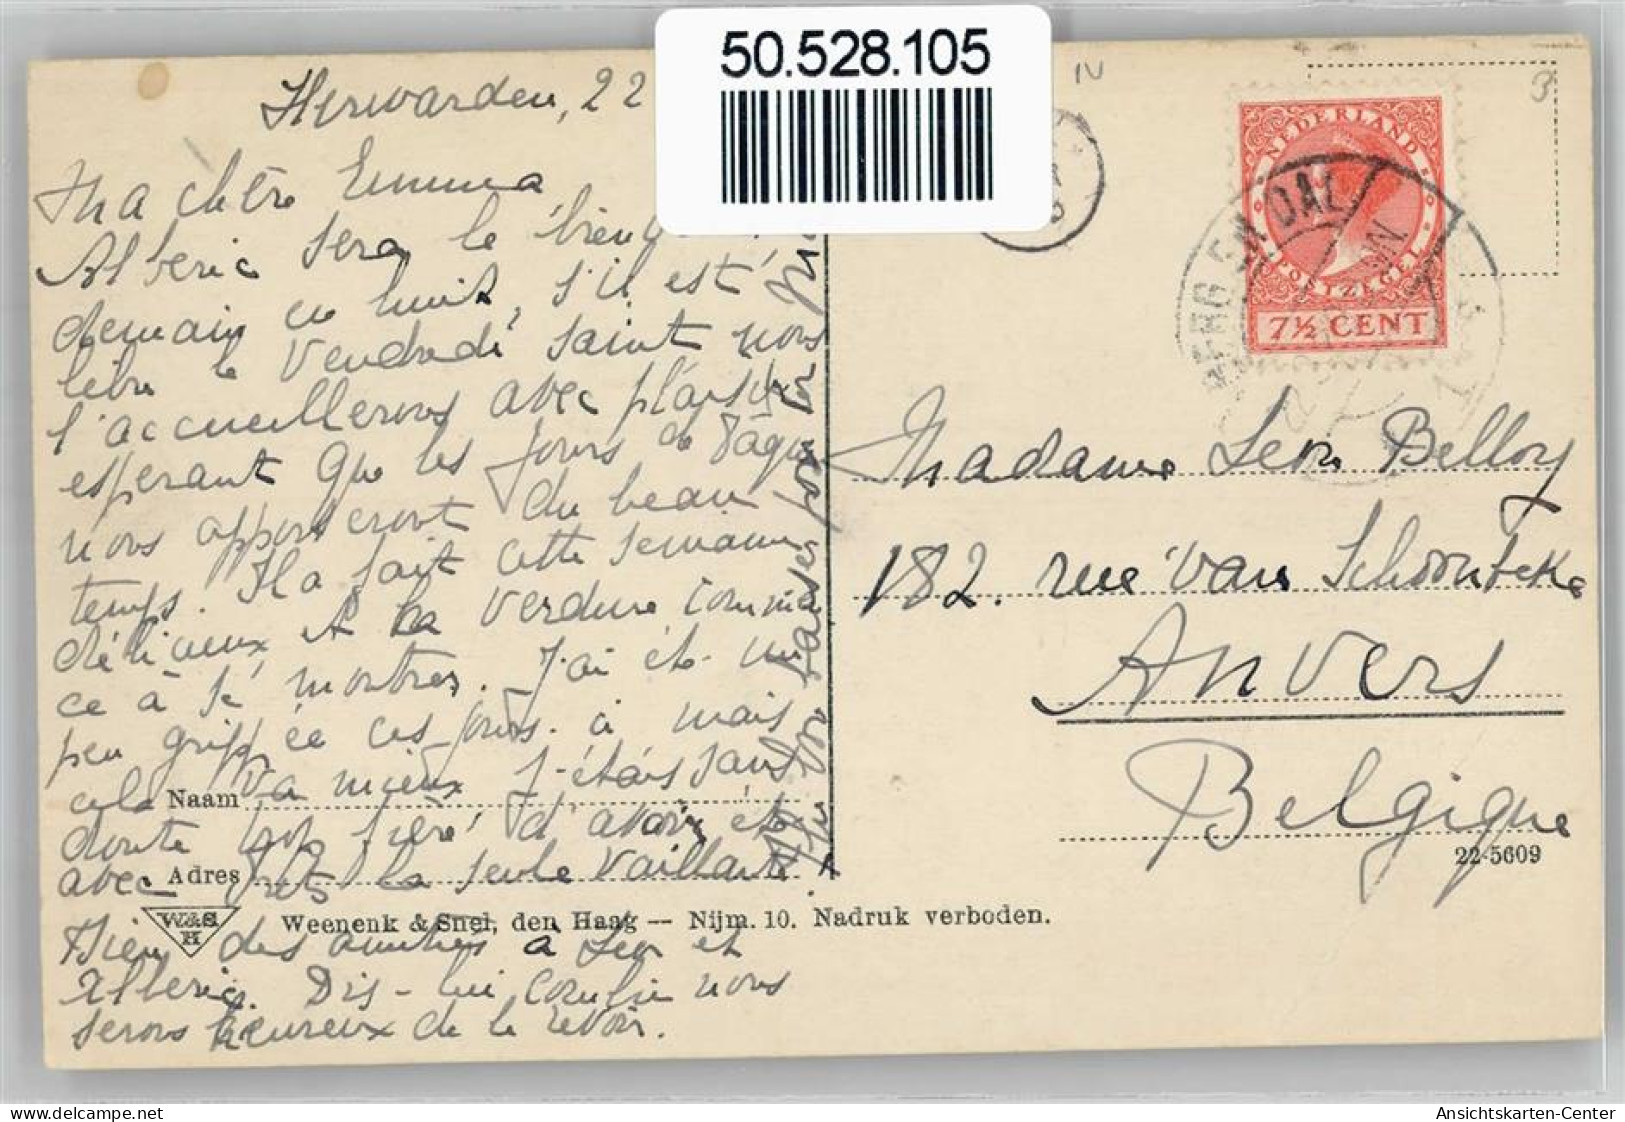 50.528.105
Herwarden, 22
IV
Ma chère Emma
Alberic sera le bien
demain en huit, s'il est
libre le Vendredi saint nous
l'accueillerons avec plaisir
esperant que les jours de Pâques
nous apporteront du beau
temps. Il a fait cette semaine
délicieux et la verdure commen
ce à se montrer. J'ai été un
peu grippée ces jours-ci mais
cela va mieux j'étais sans
doute trop fière d'avoir été
avec la seule vaillante.
Bien des amitiés à Leon et
Alberic. Dis-lui combien nous
serons heureux de le revoir.
Naam
Adres
W&S
H
Weenenk & Snel, den Haag — Nijm. 10. Nadruk verboden.
NEDERLAND
POSTZEGEL
7½ CENT
BERG EN DAL
Madame Leon Belloy
182. rue Van Schoonbeke
Anvers
Belgique
22-5609
Ansichtskarten-Center